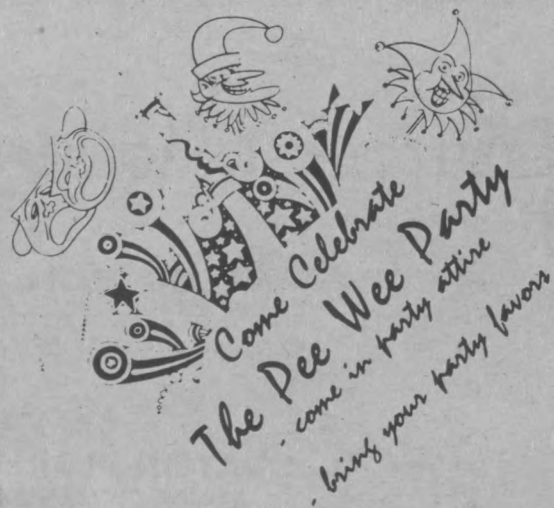 Come Celebrate
The Pee Wee Party
- come in party attire
- bring your party favors